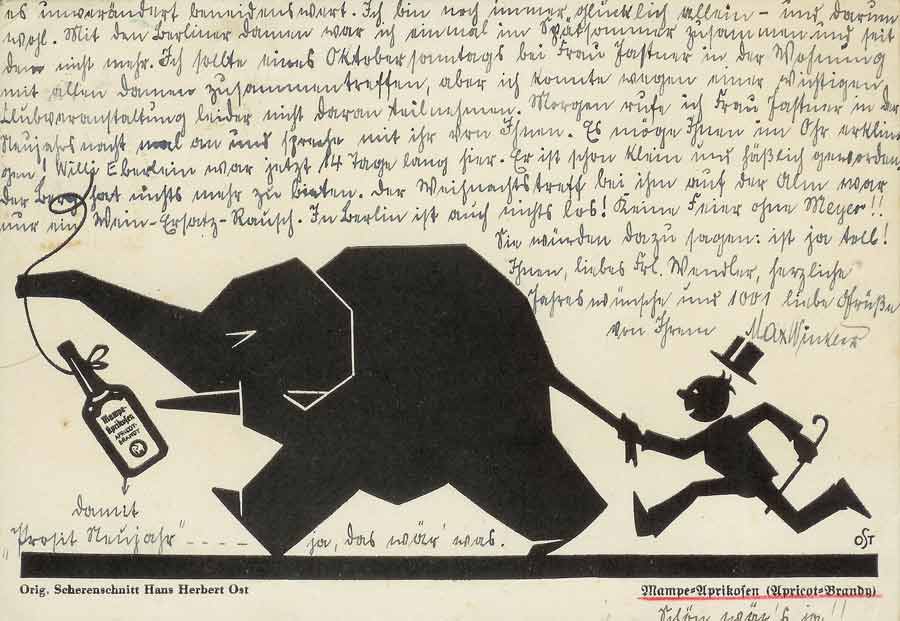 es unverändert beneidenswert. Ich bin noch immer glücklich allein – und darum
wohl. Mit den Berliner Damen war ich einmal im Spätsommer zusammen und seit
dem nicht mehr. Ich sollte eines Oktobersonntags bei Frau Fastner in der Wohnung
mit allen Damen zusammentreffen, aber ich konnte wegen einer wichtigen
Clubveranstaltung leider nicht daran teilnehmen. Morgen rufe ich Frau Fastner in der
Neujahrsnacht mal an und spreche mit ihr von Ihnen. Es möge Ihnen im Ohr erklin-
gen! Willi Eberlein war jetzt 14 Tage lang hier. Er ist schon klein und häßlich geworden
Der Berg hat nichts mehr zu bieten. Der Weihnachtstreff bei ihm auf der Alm war
nur ein Wein-Ersatz-Rausch. In Berlin ist auch nichts los! Keine Feier ohne Meyer!!
Sie würden dazu sagen: ist ja toll!
Ihnen, liebes Frl. Wendler, herzliche
Jahreswünsche und 1001 liebe Grüße
von Ihrem Max Winkler
Mampe-
Aprikosen
APRICOT-
BRANDY
damit
"Prosit Neujahr" - - - - ja, das wär' was.
OST
Orig. Scherenschnitt Hans Herbert Ost
Mampe=Aprikosen (Apricot=Brandy)
Schön wär's ja!!